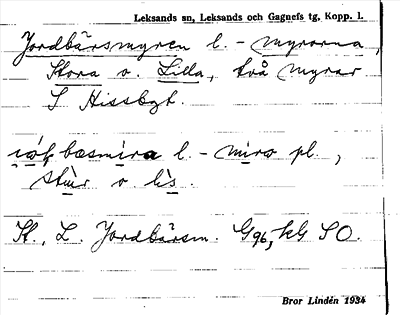 Leksands sn, Leksands och Gagnefs tg, Kopp. l.
Jordbärsmyren l. - myrorna,
Stora o. Lilla, två myrar
S Hissbyt.
bæsmira l. - mira pl.,
stùr o. lìs.
St., L. Jordbärsm. Gg96, hG SO.
Bror Lindén 1934